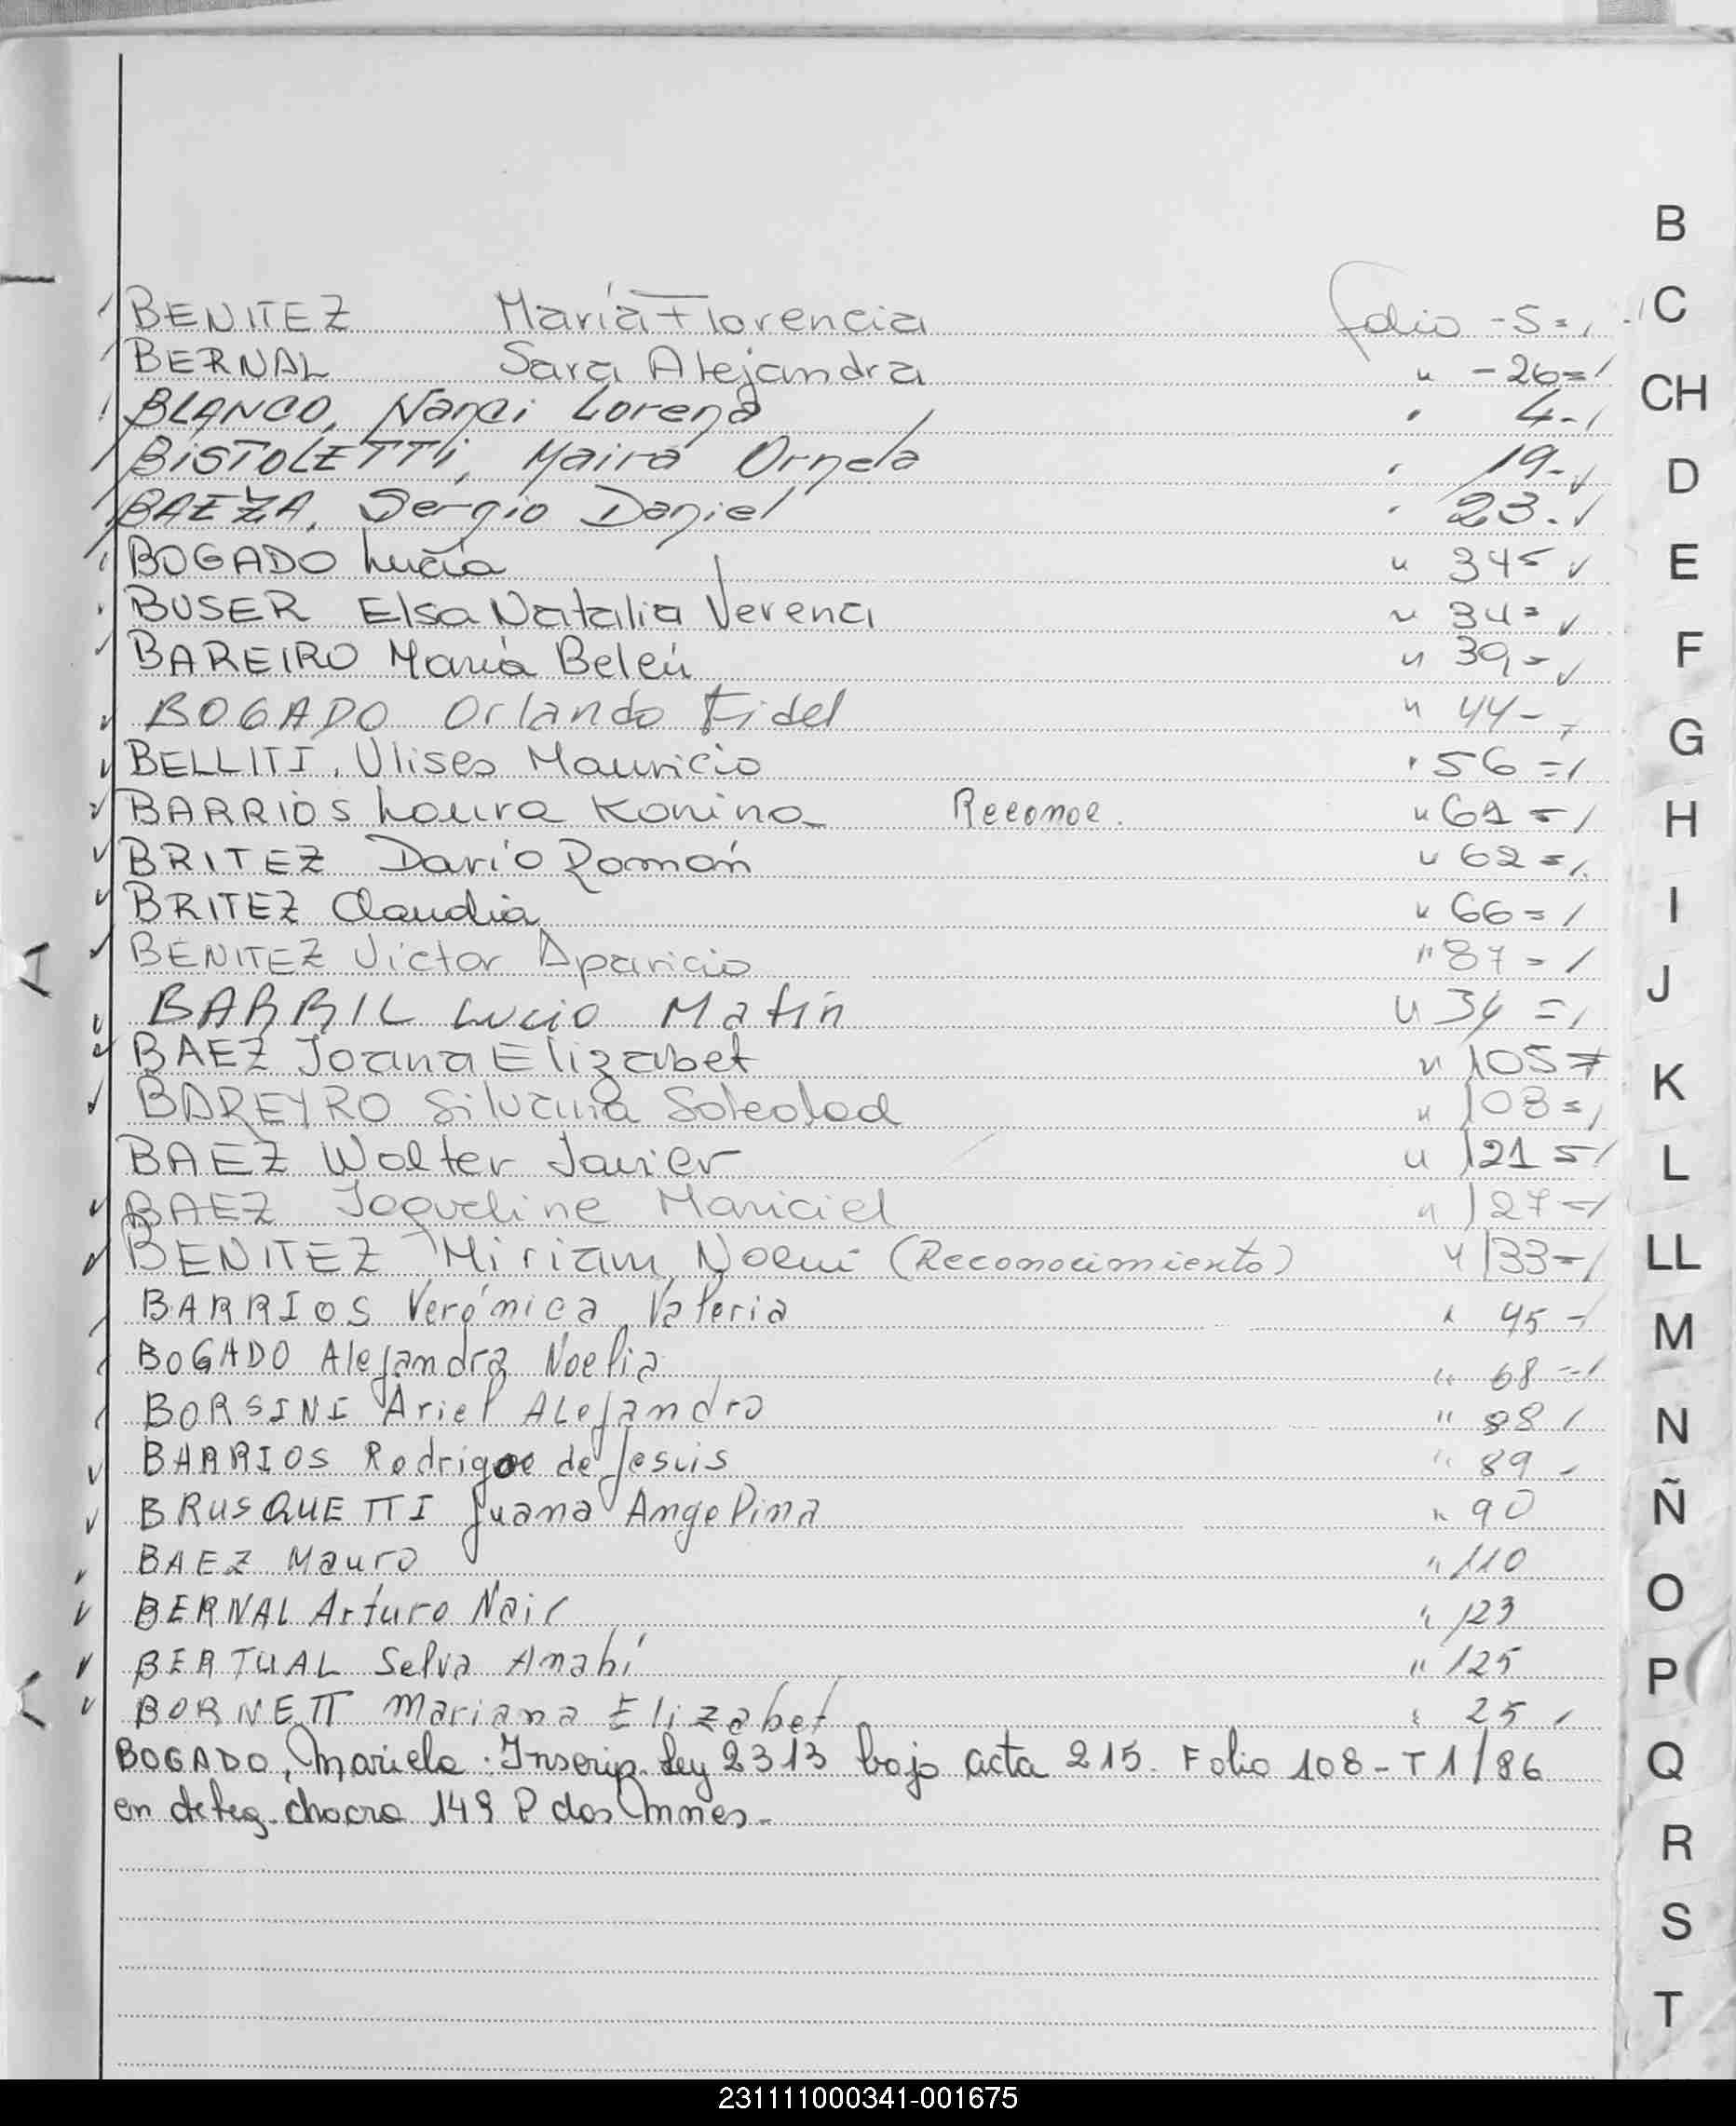 BENITEZ María Florencia Folio - 5 =
BERNAL Sara Alejandra " - 26 =
BLANCO, Nanci Lorena " 4 -
BiSTOLETTi, Maira Ornela " 19 -
BAEZA, Sergio Daniel " 23 -
BOGADO Lucía " 34 =
BUSER Elsa Natalia Verena " 34 =
BAREIRO María Belén " 39 =
BOGADO Orlando Fidel " 44 -
BELLITI, Ulises Mauricio " 56 =
BARRIOS Laura Karina Reconoc. " 61 =
BRITEZ Darío Román " 62 =
BRITEZ Claudia " 66 =
BENITEZ Victor Aparicio " 87 =
BARRIL Lucio Matín " 34 =
BAEZ Joana Elizabet " 105 =
BAREYRO Silvania Soledad " 108 =
BAEZ Walter Javier " 121 =
BAEZ Jaqueline Mariciel " 127 =
BENITEZ Miriam Noemi (Reconocimiento) " 133 =
BARRIOS Verónica Valeria " 45 -
BOGADO Alejandra Noelia " 68 =
BORSINI Ariel Alejandro " 88
BARRIOS Rodrigo de Jesus " 89 -
BRUSQUETTI Juana Angelina " 90
BAEZ Mauro " 110
BERNAL Arturo Nair " 123
BERTUAL Selva Anahí " 125
BORNETT Mariana Elizabet " 25
BOGADO, Mariela : Inscrip. Ley 2313 bajo acta 215. Folio 108 - T 1/86
en deleg. chacra 149 P dos Mnes.-
B
C
CH
D
E
F
G
H
I
J
K
L
LL
M
N
Ñ
O
P
Q
R
S
T
231111000341-001675